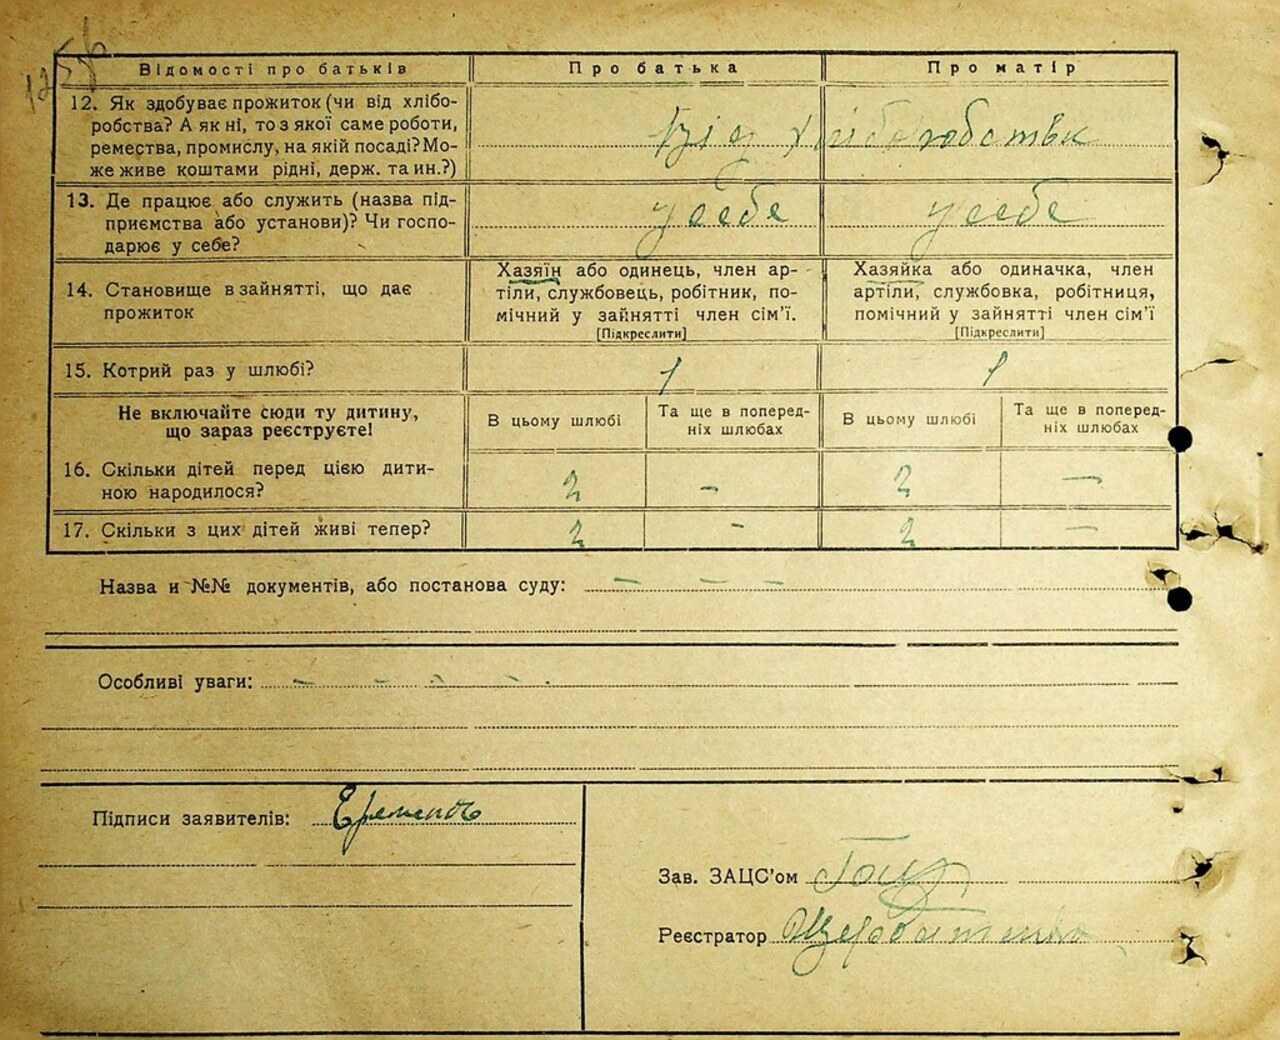 Відомості про батьків
Про батька
Про матір
12. Як здобуває прожиток (чи від хлібо-
робства? А як ні, то з якої саме роботи,
ремества, промислу, на якій посаді? Мо-
же живе коштами рідні, держ. та ин.?)
від хліборобства
13. Де працює або служить (назва під-
приємства або установи)? Чи госпо-
дарює у себе?
у себе
у себе
14. Становище в зайнятті, що дає
прожиток
Хазяїн або одинець, член ар-
тіли, службовець, робітник, по-
мічний у зайнятті член сім’ї.
[Підкреслити]
Хазяйка або одиначка, член
артіли, службовка, робітниця,
помічний у зайнятті член сім’ї
[Підкреслити]
15. Котрий раз у шлюбі?
1
1
Не включайте сюди ту дитину,
що зараз реєструєте!
В цьому шлюбі
Та ще в поперед-
ніх шлюбах
В цьому шлюбі
Та ще в поперед-
ніх шлюбах
16. Скільки дітей перед цією дити-
ною народилося?
2
-
2
—
17. Скільки з цих дітей живі тепер?
2
-
2
—
Назва и №№ документів, або постанова суду: — — —
Особливі уваги: - - - - -
Підписи заявителів:
Зав. ЗАЦС’ом
Реєстратор